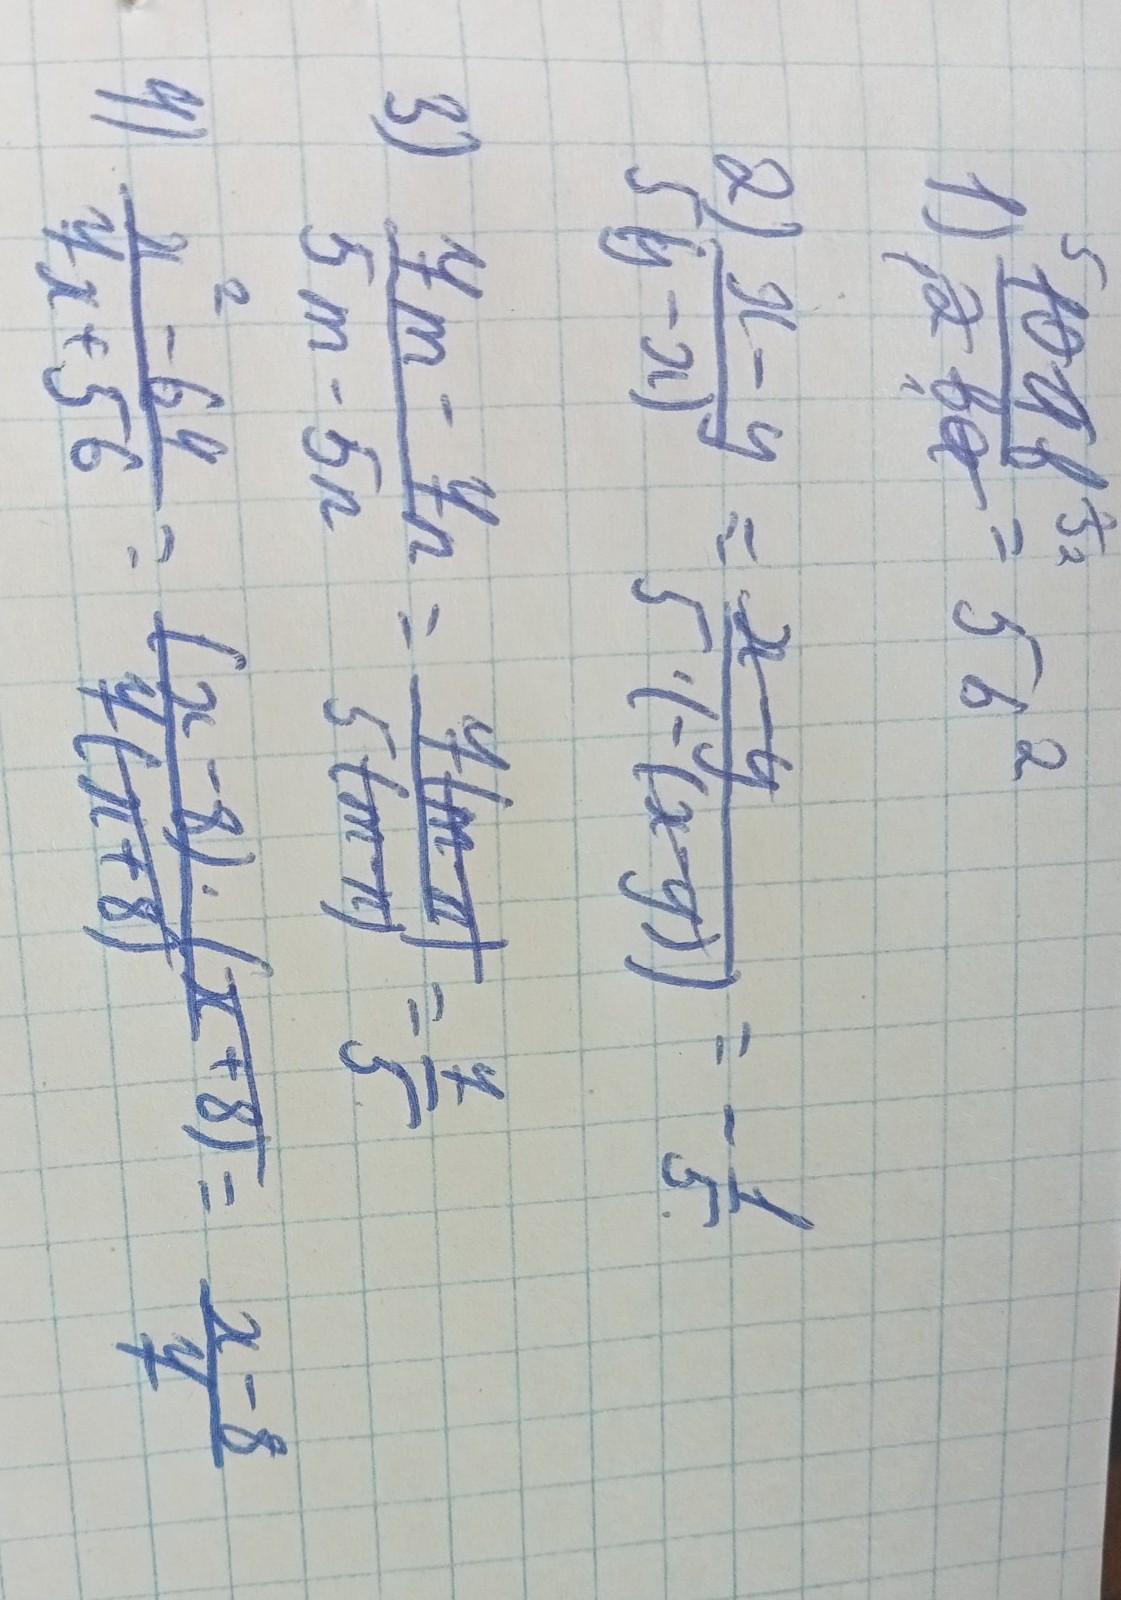 1) 10ab³/2ba = 5b²
2) x-y/5(y-x) = x-y/5·(-(x-y)) = -1/5
3) 7m-7n/5m-5n = 7(m-n)/5(m-n) = 7/5
4) x²-64/7x+56 = (x-8)·(x+8)/7(x+8) = x-8/7